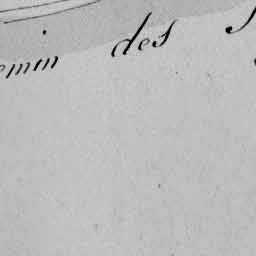 emin des